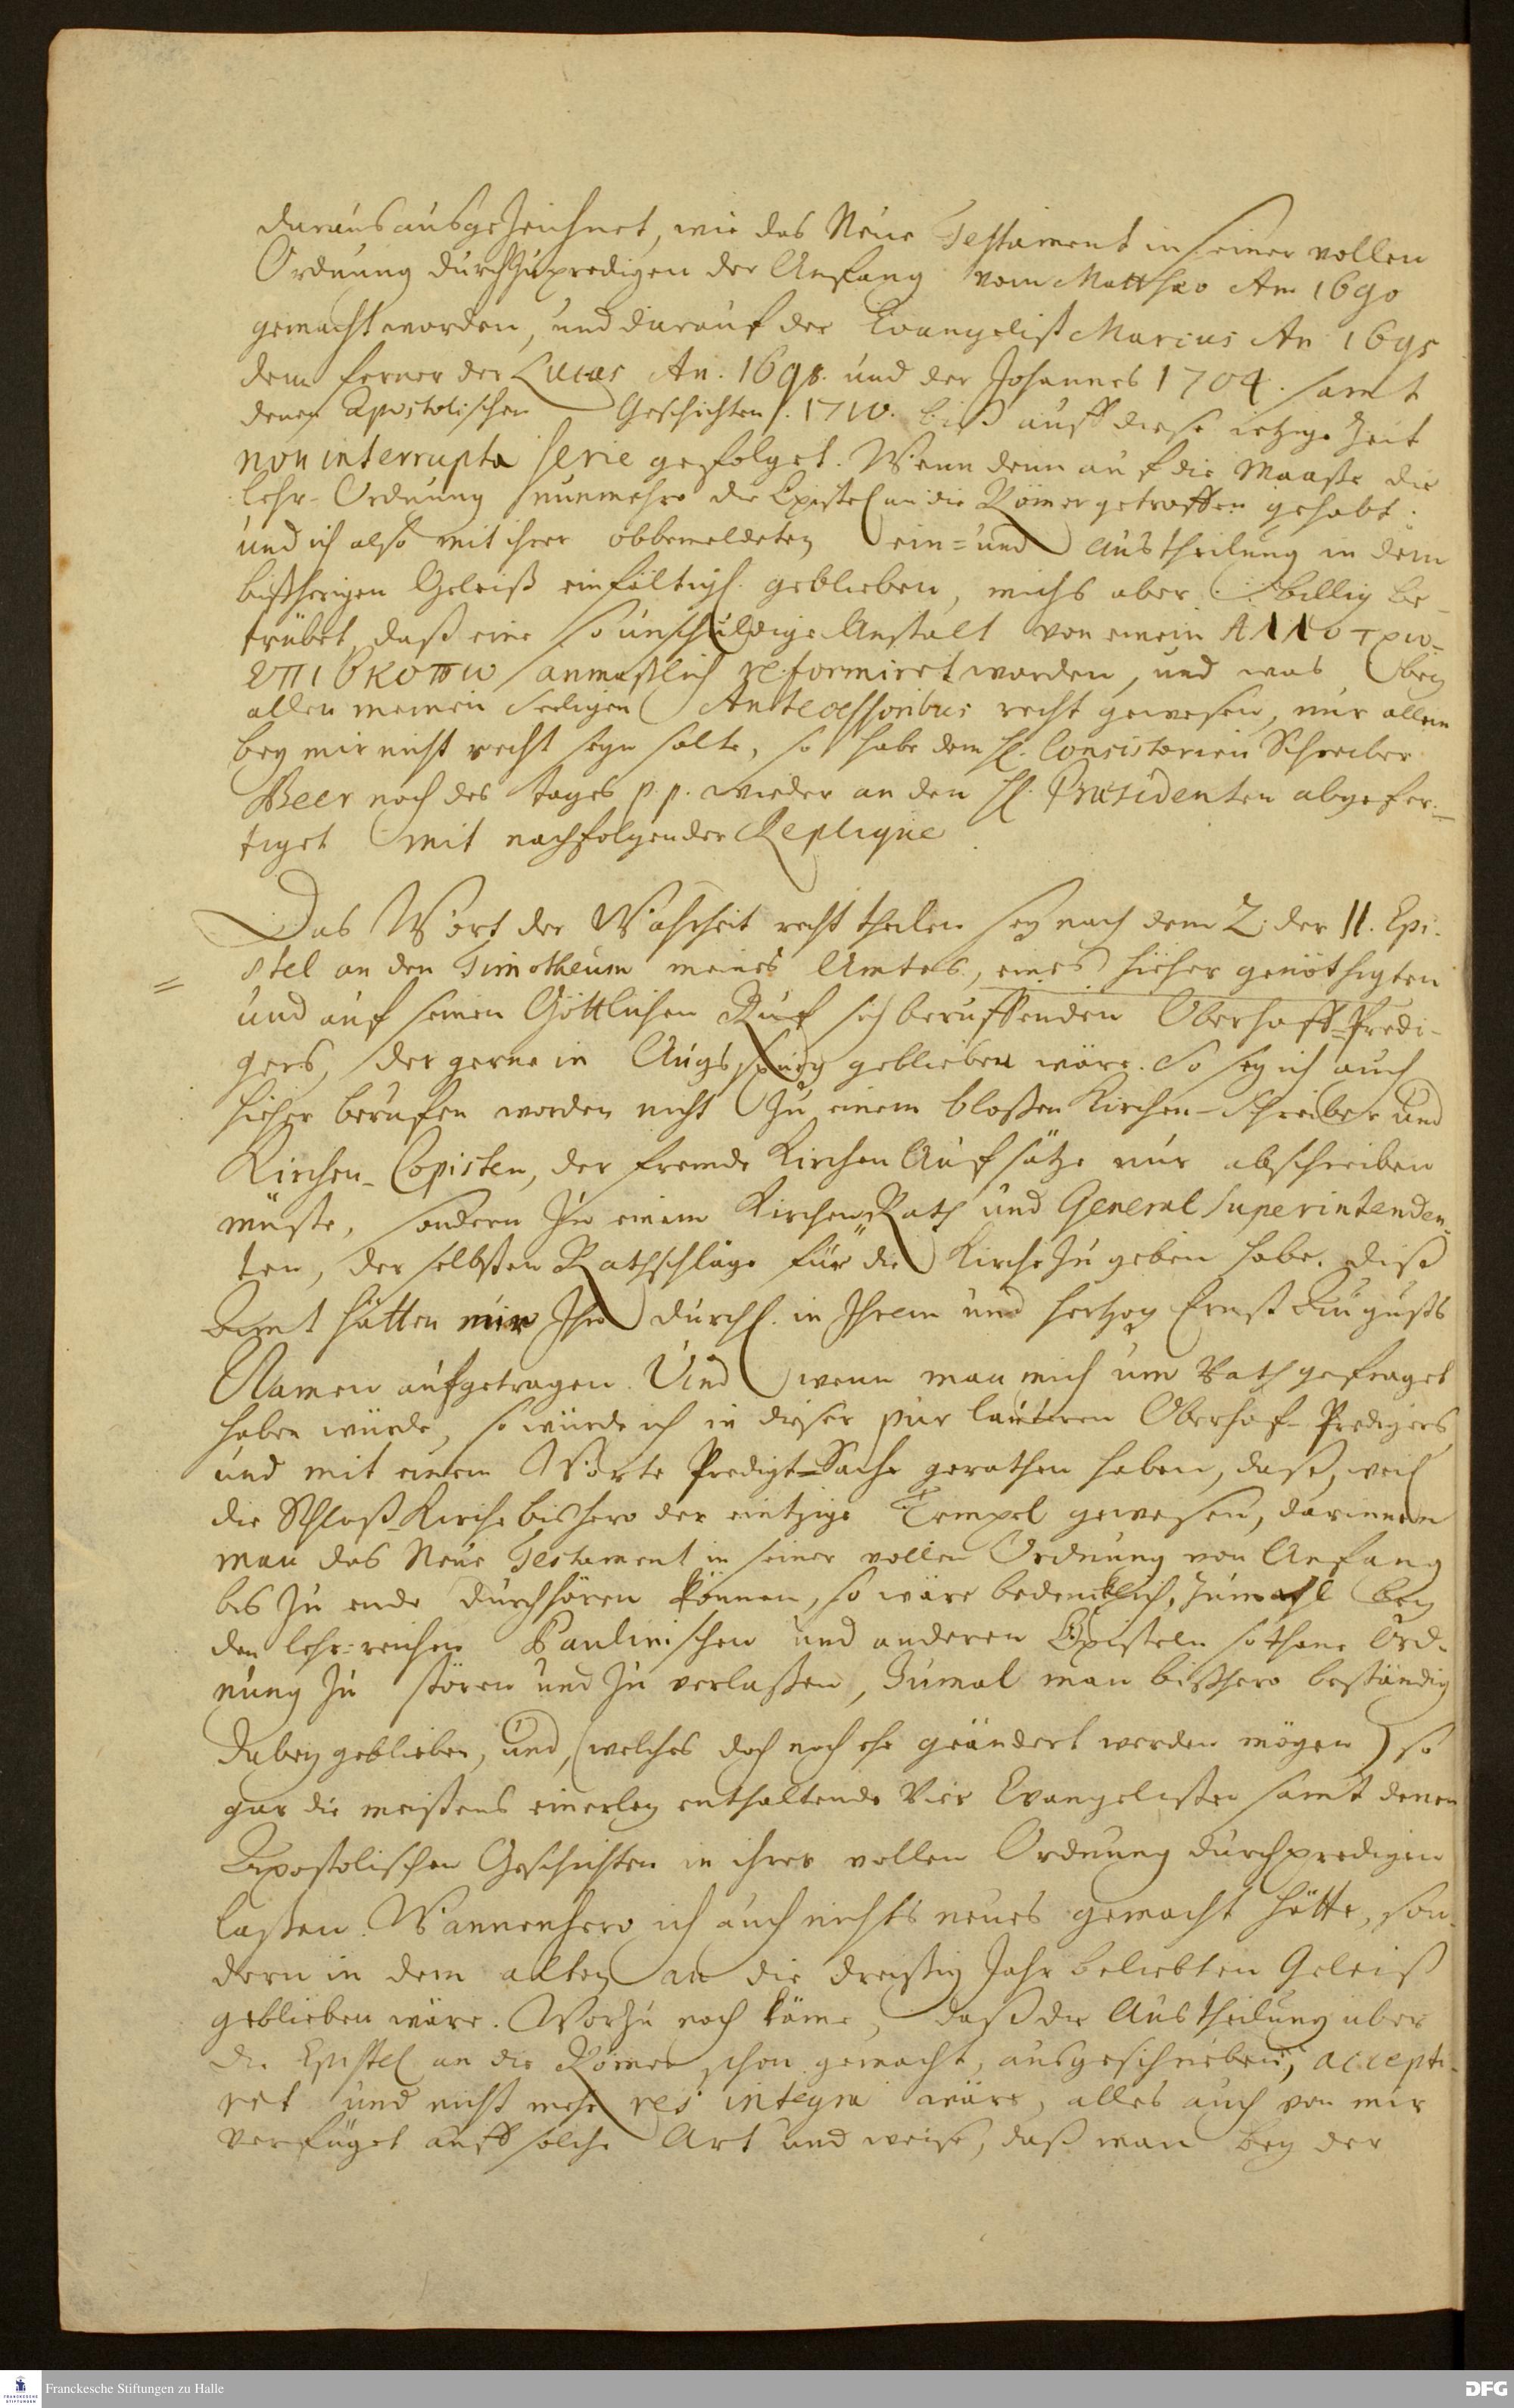 daraus ausgezeichnet, wie das Neue Testament in seiner vollen
Ordnung durchzupredigen der Anfang vom Matthæo An 1690
gemacht worden, und darauf der Evangelist Marcus An 1695
dem ferner der Lucas An. 1698. und der Johannes 1704. samt
denen Apostolischen Geschichten 1710. biß auff diese ietzige Zeit
non interrupta serie gefolget. Wenn denn auf die Maaße die
lehr-Ordnung nunmehro die Epistel an die Römer getroffen gehabt.
und ich also mit ihrer obbemeldeten ein= und Austheilung in dem
bißherigen Geleiß einfältigl. geblieben, michs aber billig be-
trübet, daß eine so unschuldige Anstalt von einem ΑΛΛοτριο-
επισκοπω anmaßlich reformiret worden, und was bey
allen meinen Seeligen Antecessoribus recht gewesen, nur allein
bey mir nicht recht seyn solte, so habe dem H. Consistorien Schreiber
Beer noch des tages p. p. wieder an den H. Præsidenten abgefer-
tiget mit nachfolgender Replique
Das Wort der Wahrheit recht theilen sey nach dem 2. der II. Epi-
stel an den Timotheum meines Amtes, eines hieher genöthigten
und auf seinen Göttlichen Ruf sich beruffenden Oberhoff-Predi-
gers, der gerne in Augspurg geblieben wäre. So sey ich auch
hieher beruffen worden nicht zu einem bloßen Kirchen-Schreiber und
Kirchen-Copisten, der fremde Kirchen Aufsätze nur abschreiben
müste, sondern zu einem Kirchen Rath und General Superintenden-
ten, der selbsten Rathschläge für die Kirche zu geben habe. Diß
Amt hätten mir Ihro Durchl. in Ihrem und Hertzog Ernst Augusts
Namen aufgetragen. Und wenn man mich um Rath gefraget
haben würde, so würde ich in dieser pur lauteren Oberhof-Predigers
und mit einem Worte Predigt-Sache gerathen haben, daß, weil
die Schloß-Kirche bishero der eintzige Tempel gewesen, darinnen
man das Neue Testament in seiner vollen Ordnung von Anfang
bis zu ende durchhören können, so wäre bedencklich, zumahl bey
den lehr-reichen Paulinischen und anderen Episteln sothane Ord-
nung zu stören und zu verlaßen, Zumal man bißhero beständig
dabey geblieben, und, (welches doch noch ehe geändert werden mögen) so
gar die meistens einerley enthaltende Vier Evangelisten samt denen
Apostolischen Geschichten in ihrer vollen Ordnung durchpredigen
laßen. Wannenhero ich auch nichts neues gemacht hätte, son-
dern in dem alten an die dreißig Jahr beliebten Geleiß
geblieben wäre. Worzu noch käme, daß die Austheilung über
die Epistel an die Römer schon gemacht, ausgeschrieben, accepti-
ret und nicht mehr res integra wäre, alles auch von mir
verfüget auff solche Art und weise, daß man bey der
Franckesche Stiftungen zu Halle
DFG